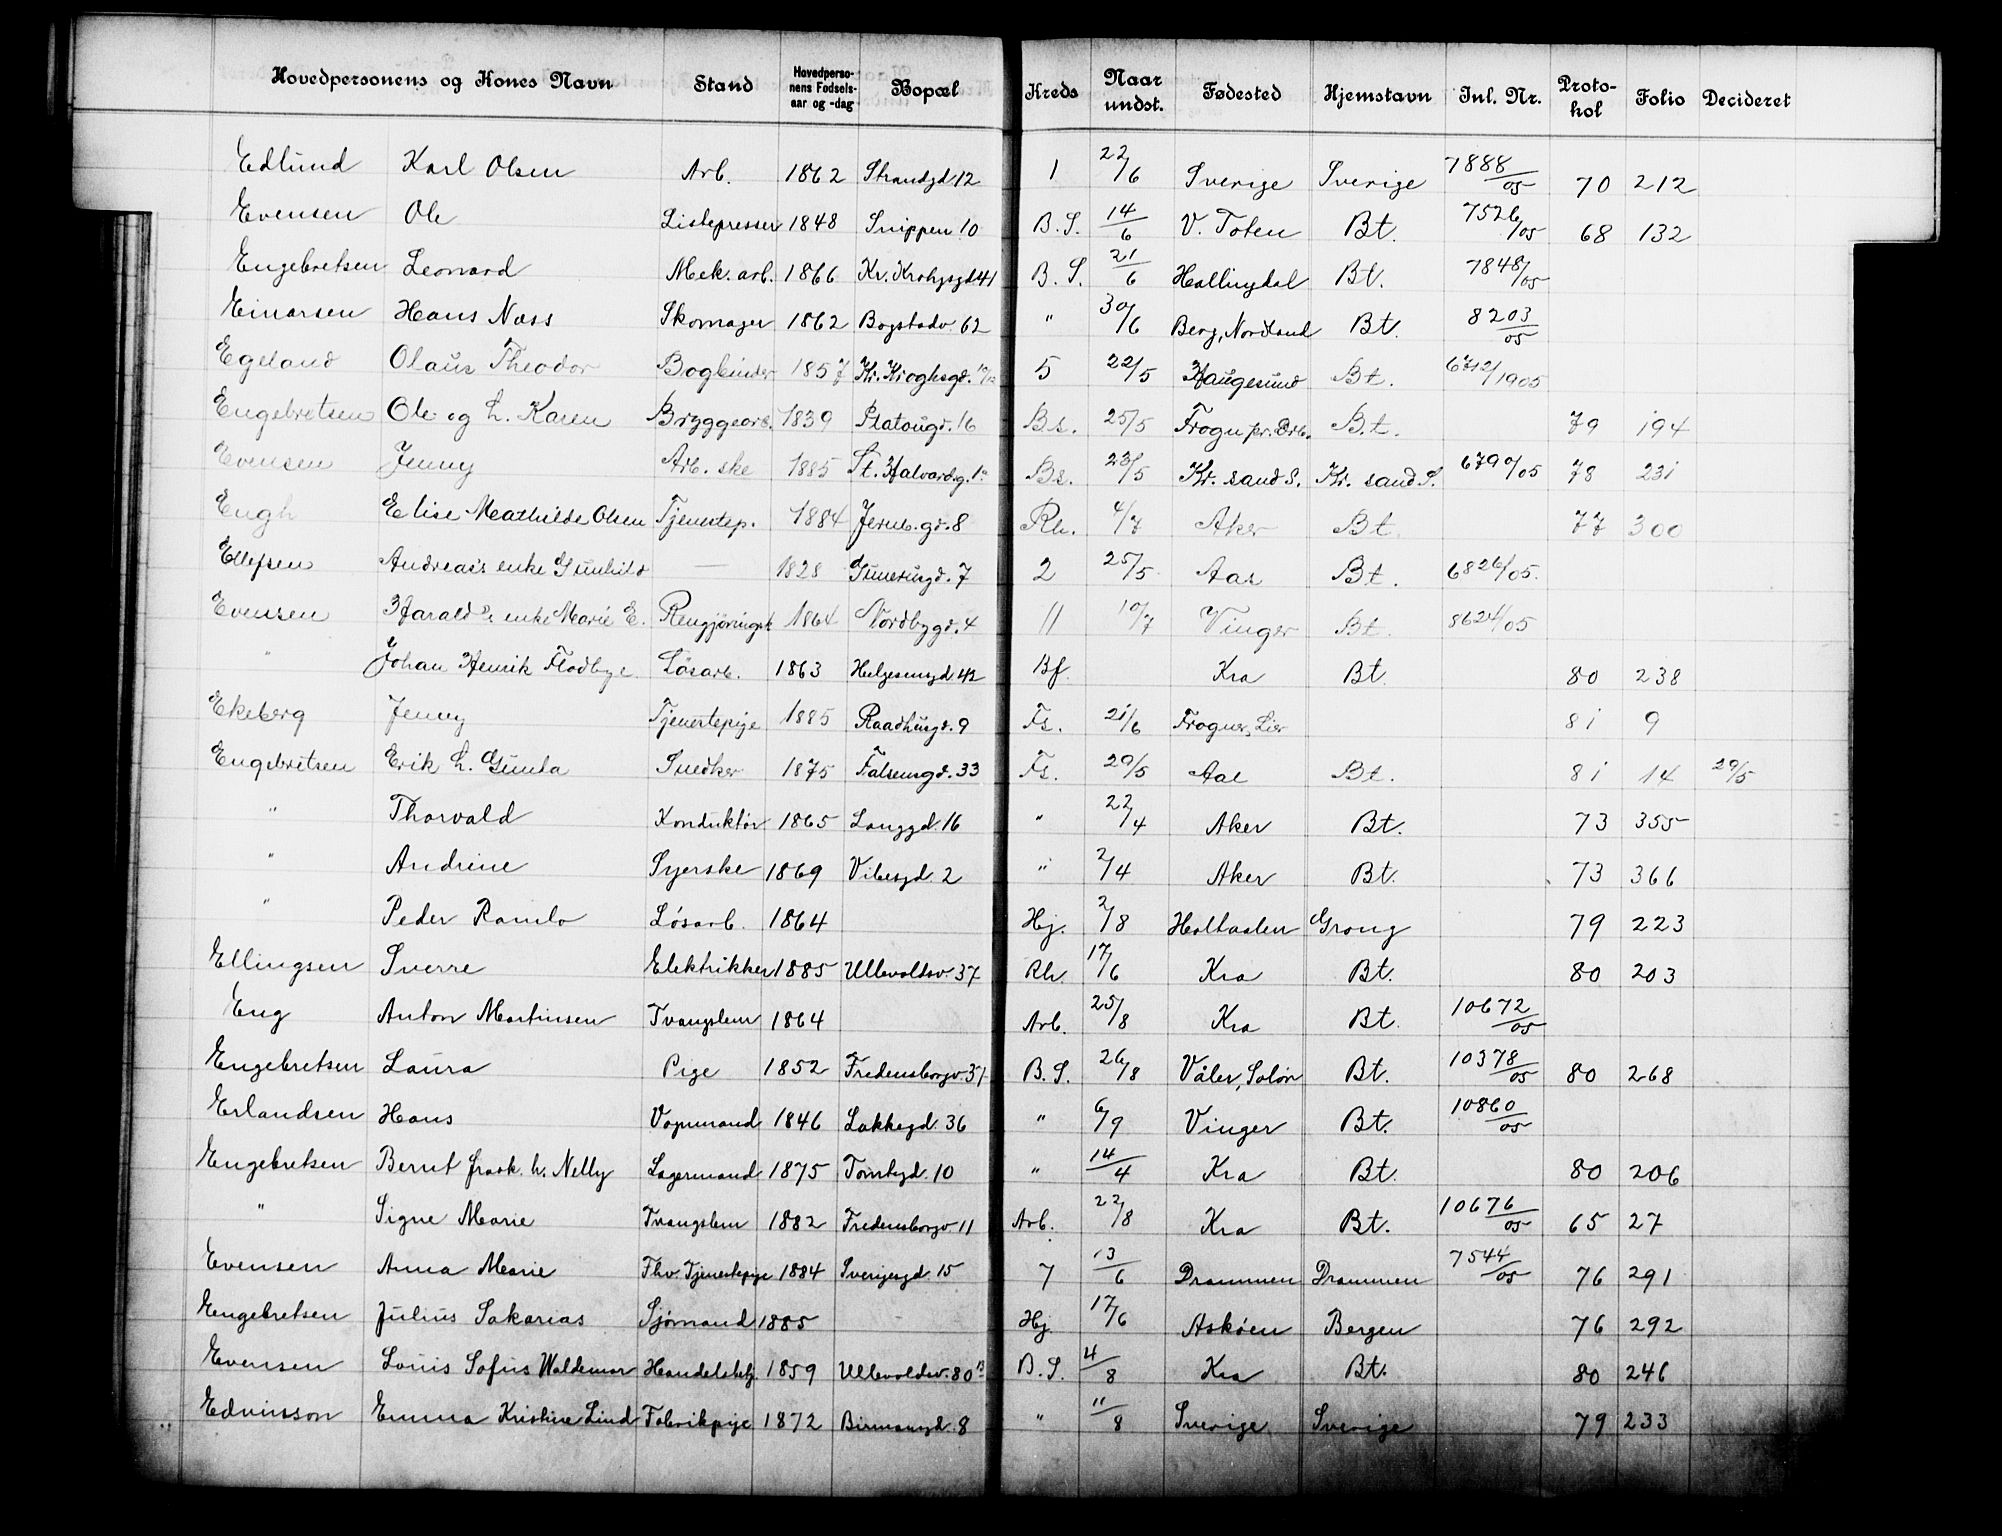 Hovedpersonens og Kones Navn Stand Hovedperso-nens Fødsels-aar og -dag Bopæl Kreds Naar undst. Fødested Hjemstavn Inl. Nr. Proto-kol Folio Decideret
Edlund Karl Olsen Arb. 1862 Strandgd 12 1 22/6 Sverige Sverige 7888/05 70 212
Evensen Ole Listepresser 1848 Snippen 10 B. S. 14/6 V. Toten Bt. 7526/05 68 132
Engebretsen Leonard Mek. arb. 1866 Kr. Krohgsgd 41 B. S. 21/6 Hallingdal Bt. 7848/05
Einarsen Hans Næss Skomager 1862 Bogstadv. 62 " 30/6 Berg, Nordland Bt. 8203/05
Egeland Olaus Theodor Bogbinder 1857 Kr. Kroghsgd. 5 22/5 Haugesund Bt. 6712/1905
Engebretsen Ole og h. Karen Bryggearb. 1839 Platougd. 16 Bs. 25/5 Frogn pr. Drb. Bt. 79 194
Evensen Jenny Arb. ske 1885 St. Halvardsg. 1a Bs. 23/5 Kr. sand S. Kr. sand S. 6790/05 78 231
Engh Elise Mathilde Olsen Tjenestep. 1884 Jernb. gd. 8 Rh. 4/7 Aker Bt. 77 300
Ellefsen Andreas's enke Gunhild — 1828 Grünerusgd. 7 2 25/5 Aas Bt. 6826/05.
Evensen Harald's enke Marie E. Rengjøringsk 1864 Nordbygd. 4 11 10/7 Vinger Bt. 8624/05
" Johan Henrik Flodbye Løsarb. 1863 Helgesensgd. 42 Bf. Kra Bt. 80 238
Ekeberg Jenny Tjenestepige 1885 Raadhusgd. 9 Fs. 21/6 Frogner, Lier 81 9
Engebretsen Erik h. Gunda Snedker 1875 Falsensgd. 33 Fs. 29/5 Aal Bt. 81 14 29/5
" Thorvald Konduktør 1865 Langgd. 16 " 22/4 Aker Bt. 73 355
" Andrine Syerske 1869 Vibesgd. 2 " 2/4 Aker Bt. 73 366
" Peder Ramlo Løsarb. 1864 Hj. 2/8 Holtaalen Grong 79 223
Ellingsen Sverre Elektrikker 1885 Ullevoldsv. 37 Rh. 17/6 Kra Bt. 80 203
Eng Anton Martinsen Tvangslem 1864 Arb. 25/8 Kra Bt. 10672/05
Engebretsen Laura Pige 1852 Fredensborgv. 31 B. S. 26/8 Våler, Solør Bt. 10378/05 80 268
Erlandsen Hans Vognmand 1846 Lakkegd. 36 " 6/9 Vinger Bt. 10860/05
Engebretsen Bernt frask. h. Nelly Lagermand 1875 Tomtegd. 10 " 14/4 Kra Bt. 80 206
" Signe Marie Tvangslem 1882 Fredensborgv 11 Arb. 22/8 Kra Bt. 10676/05 65 27
Evensen Anna Marie Fhv. Tjenestepige 1884 Sverigesgd. 15 7 13/6 Drammen Drammen 7544/05 76 291
Engebretsen Julius Sakarias Sjømand 1885 Hj. 17/6 Askøen Bergen 76 292
Evensen Louis Sofus Waldemar Handelsbetj. 1859 Ullevoldsv. 80 B B. S. 4/8 Kra Bt. 80 246
Edvinsson Emma Kristine Lind Fabrikpige 1872 Birmansgd. 8 " 11/8 Sverige Sverige 79 233